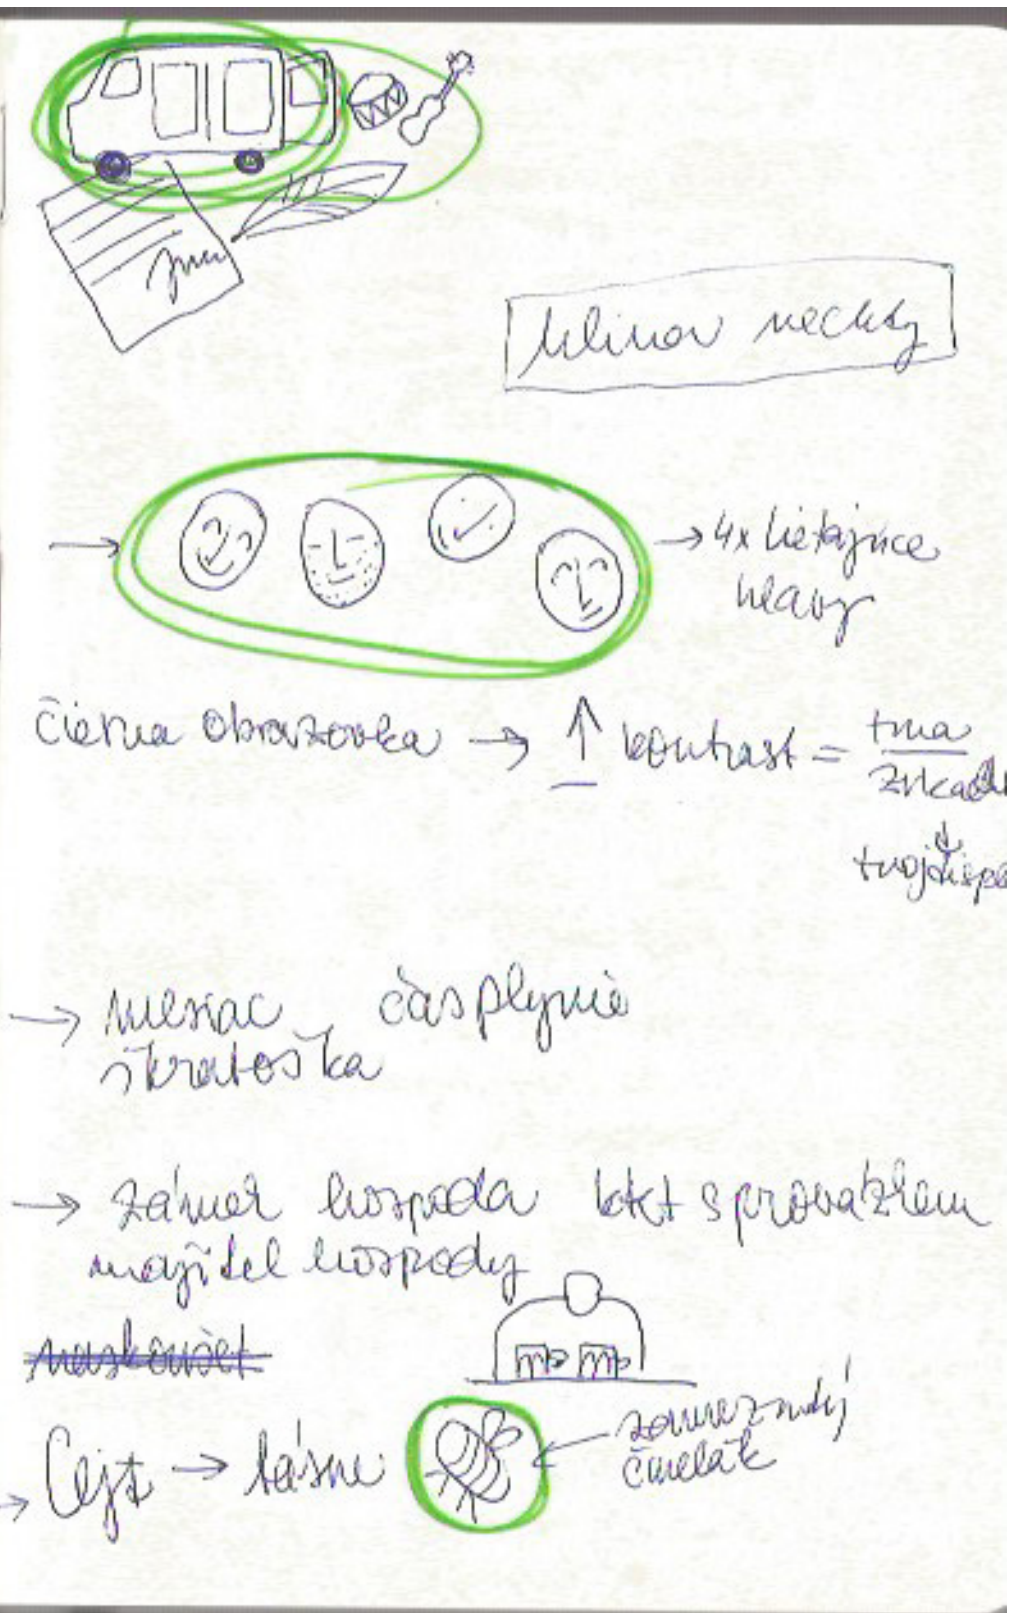 nechty
→ 4x lietajúce
hlavy
čierna obrazovka → ↑ kontrast = tma
zrkadl
↓
tvoj disple
→ mesiac čas plynie
škratoška
→ zámer hospoda ktkt s provazkem
majitel hospody
Cejz → básne
zamrznutý
čmelák